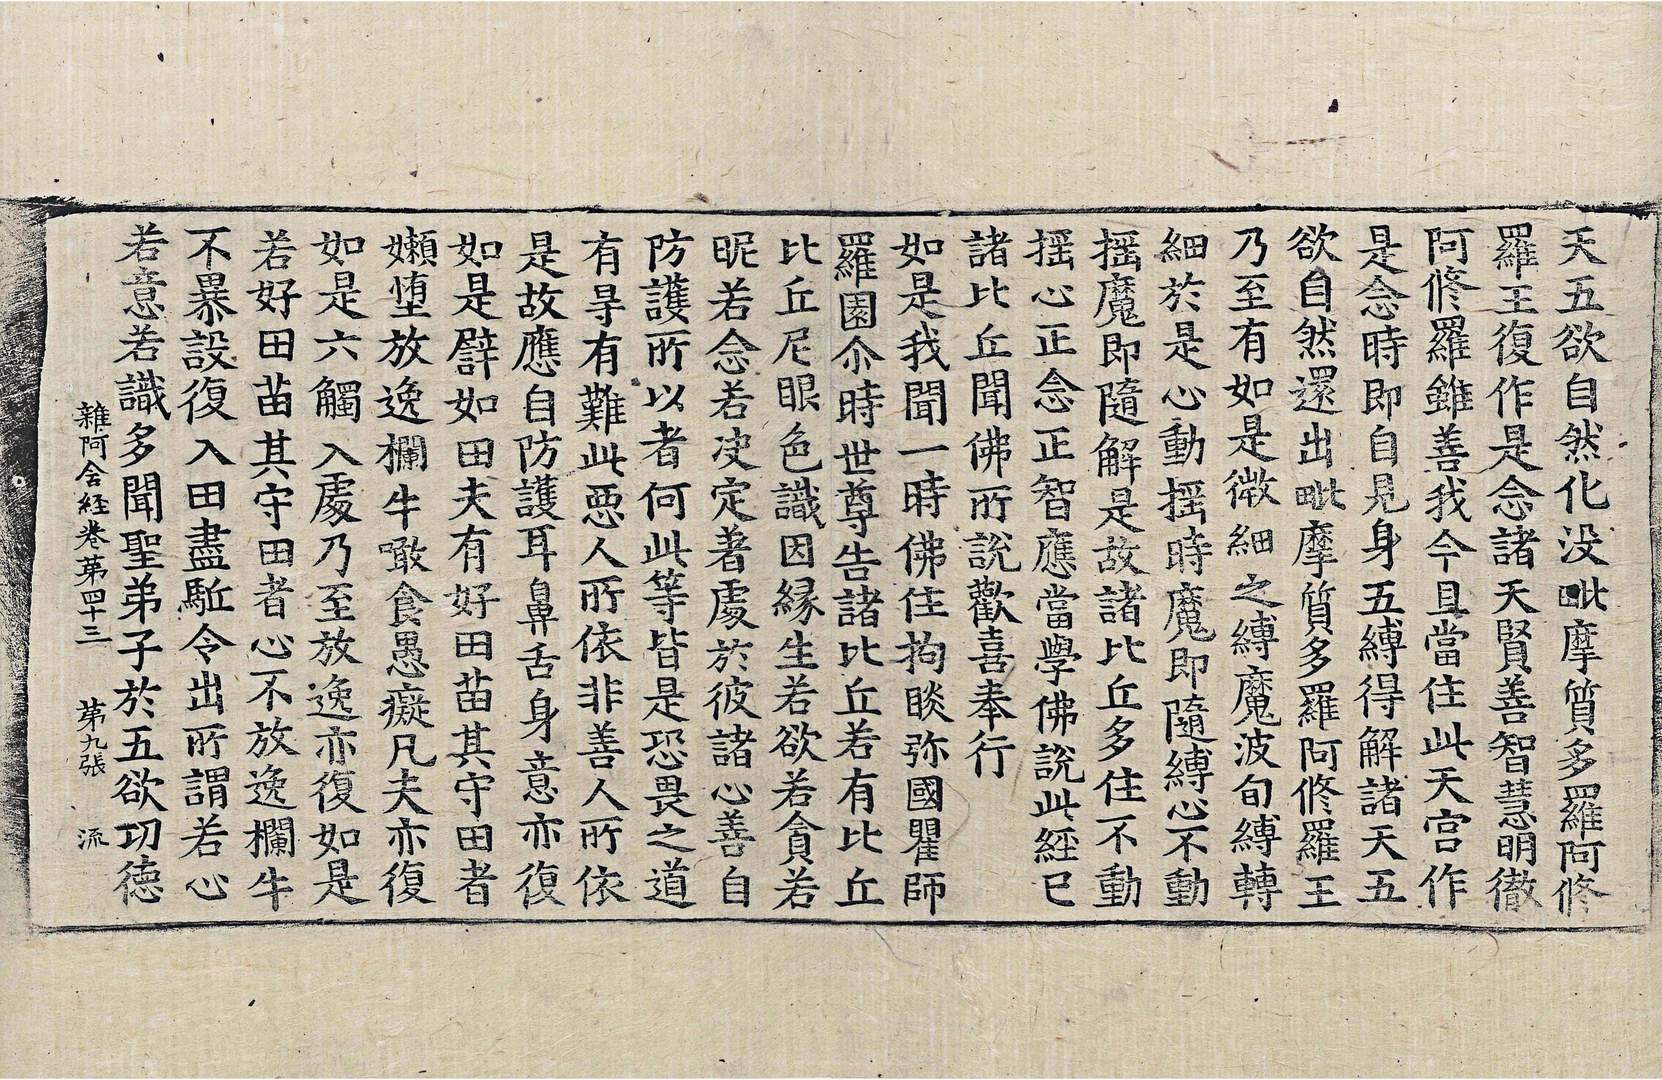 天五欲自然化没毗摩質多羅阿修
羅王復作是念諸天賢善智慧明徹
阿修羅雖善我今且當住此天宫作
是念時即自見身五縛得解諸天五
欲自然還出毗摩質多羅阿修羅王
乃至有如是微細之縛魔波旬縛轉
細於是心動揺時魔即隨縛心不動
揺魔即隨解是故諸比丘多住不動
揺心正念正智應當學佛說此經已
諸比丘聞佛所說歡喜奉行
如是我聞一時佛住拘睒弥國瞿師
羅園尒時世尊告諸比丘若有比丘
比丘尼眼色識因緣生若欲若貪若
昵若念若决定著處於彼諸心善自
防護所以者何此等皆是恐畏之道
有㝵有難此惡人所依非善人所依
是故應自防護耳鼻舌身意亦復
如是譬如田夫有好田苗其守田者
嬾墮放逸欄牛噉食愚癡凡夫亦復
如是六觸入處乃至放逸亦復如是
若好田苗其守田者心不放逸欄牛
不暴設復入田盡駈令出所謂若心
若意若識多聞聖弟子於五欲㓛德
雜阿含經卷第四十三　第九張　流